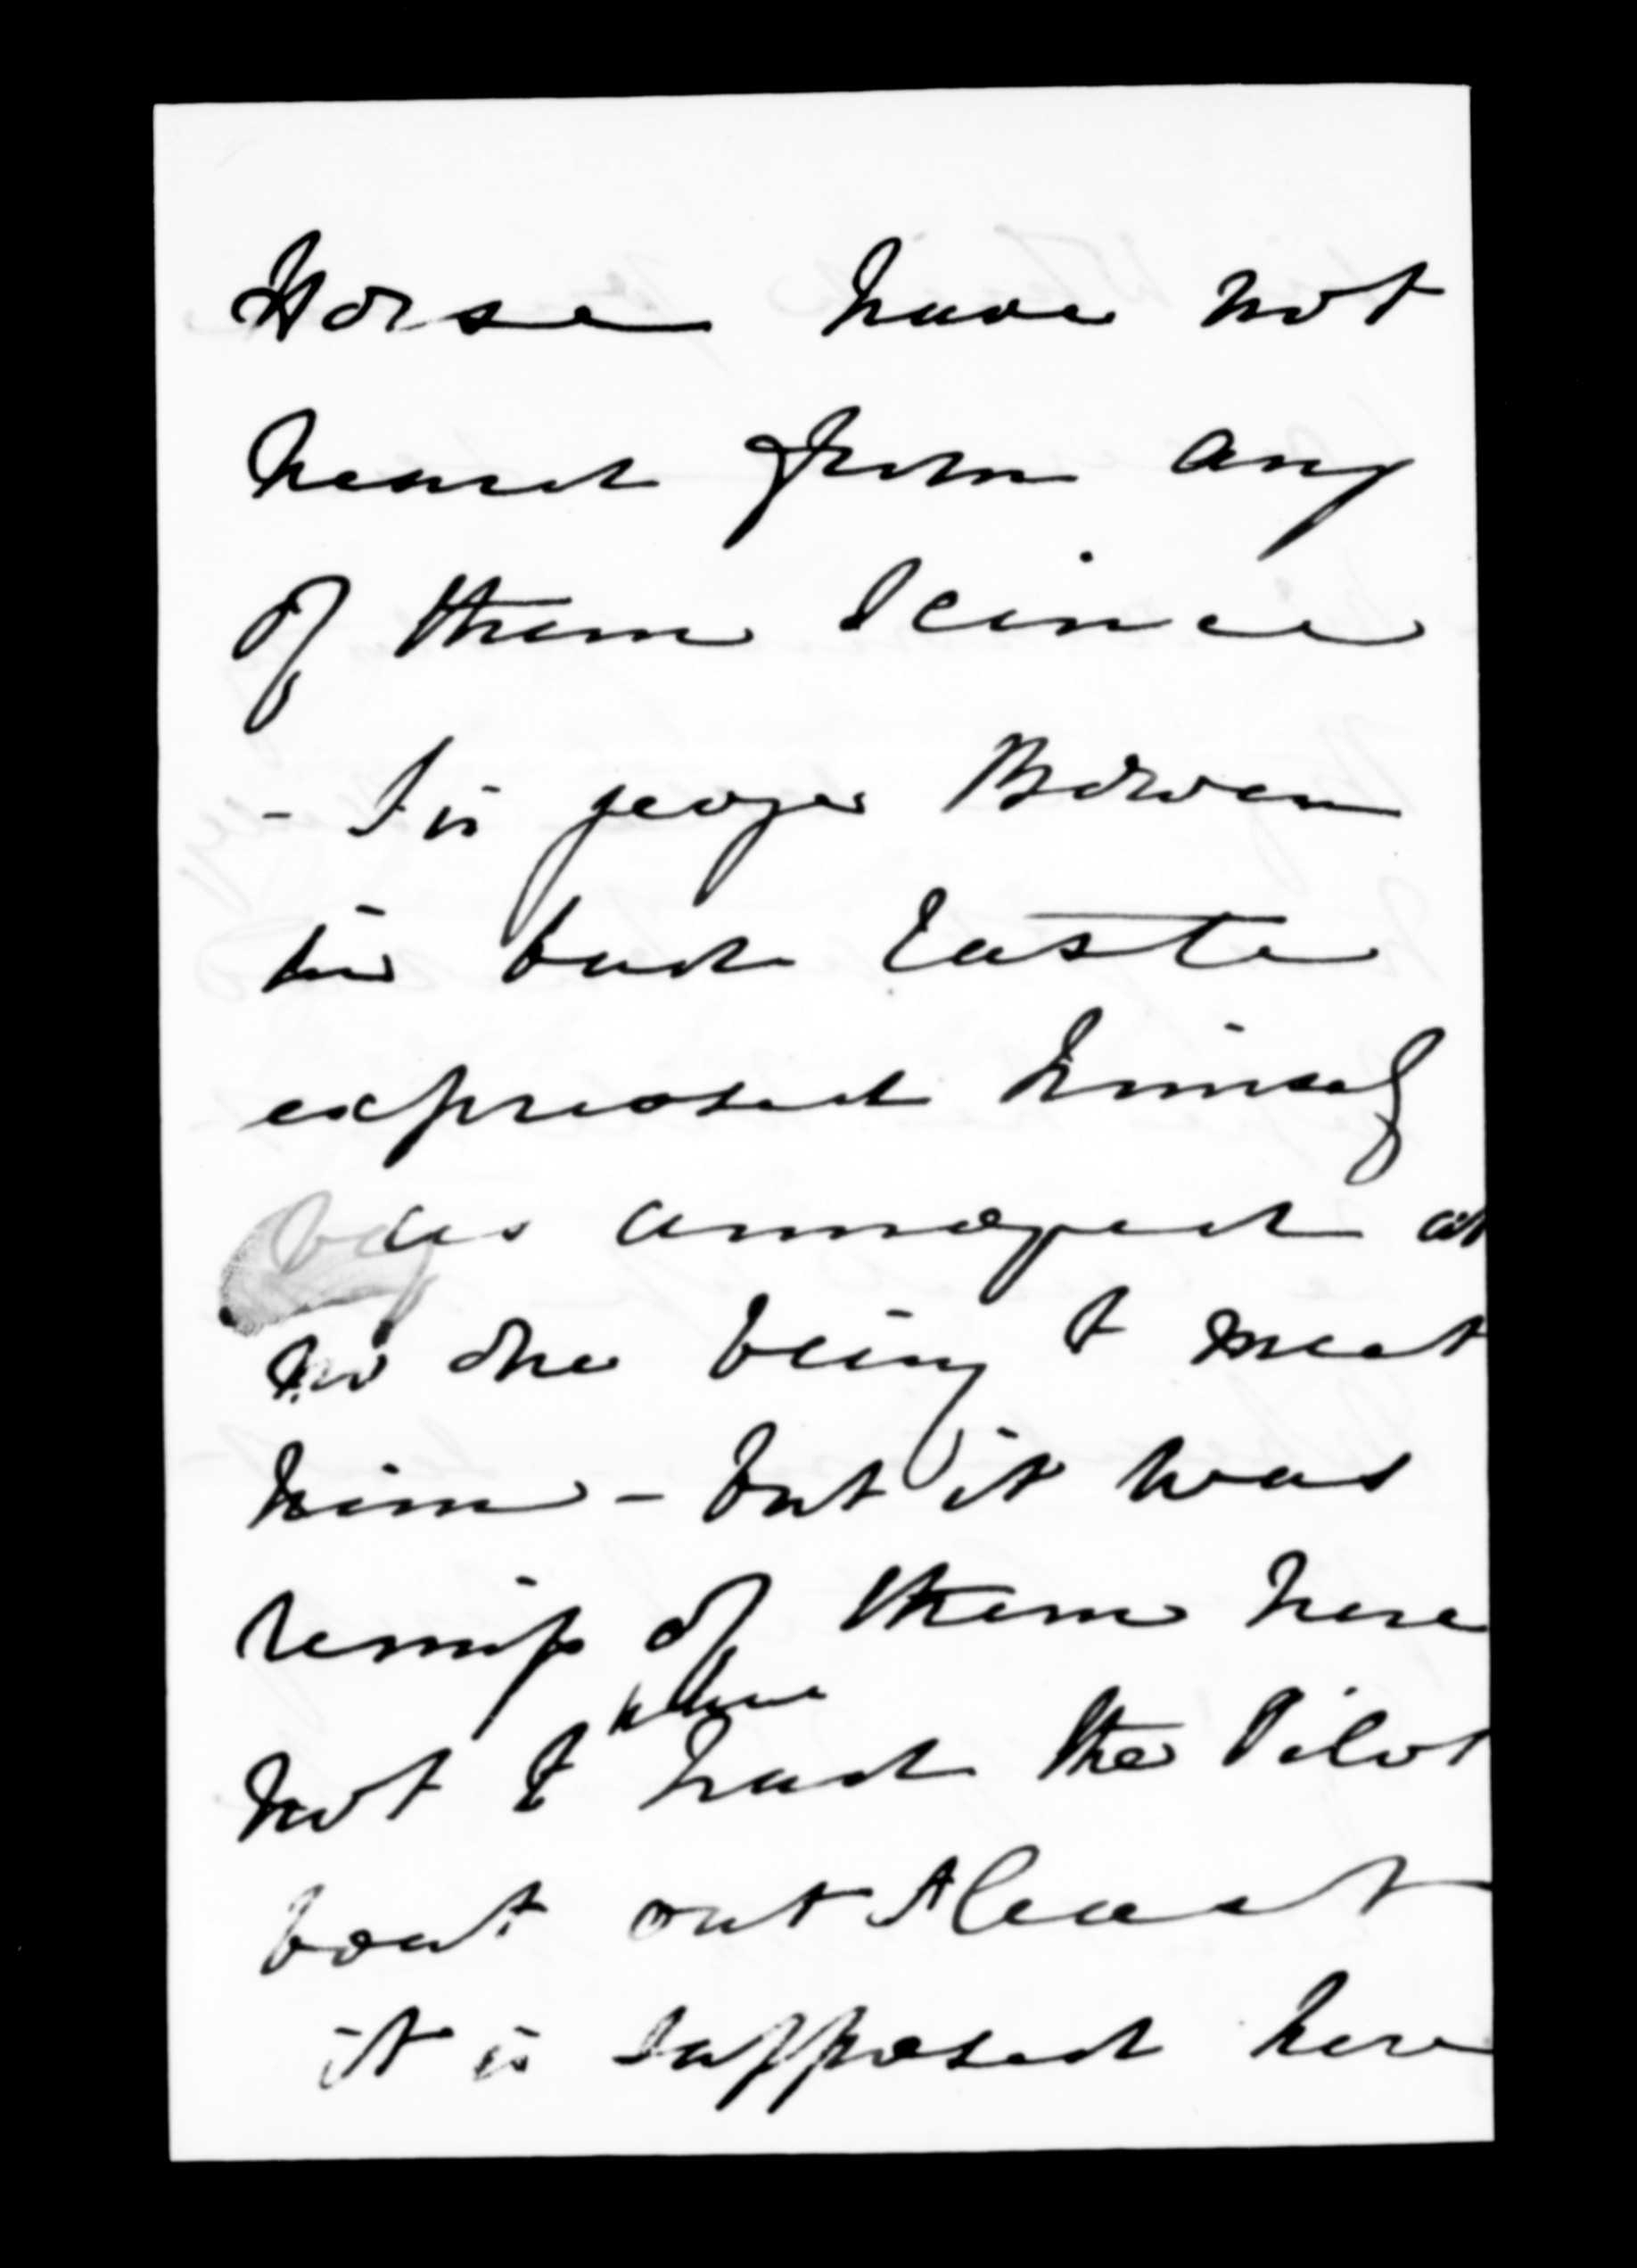 Horse have not
heard from any
of them Scince
- Sir George Bowen
in back Easte
expressed himself
as annoyed at
no one being t meet
him - but it was
remiss of them here
not t have
had the Pilot
boat out At least
it is supposed here